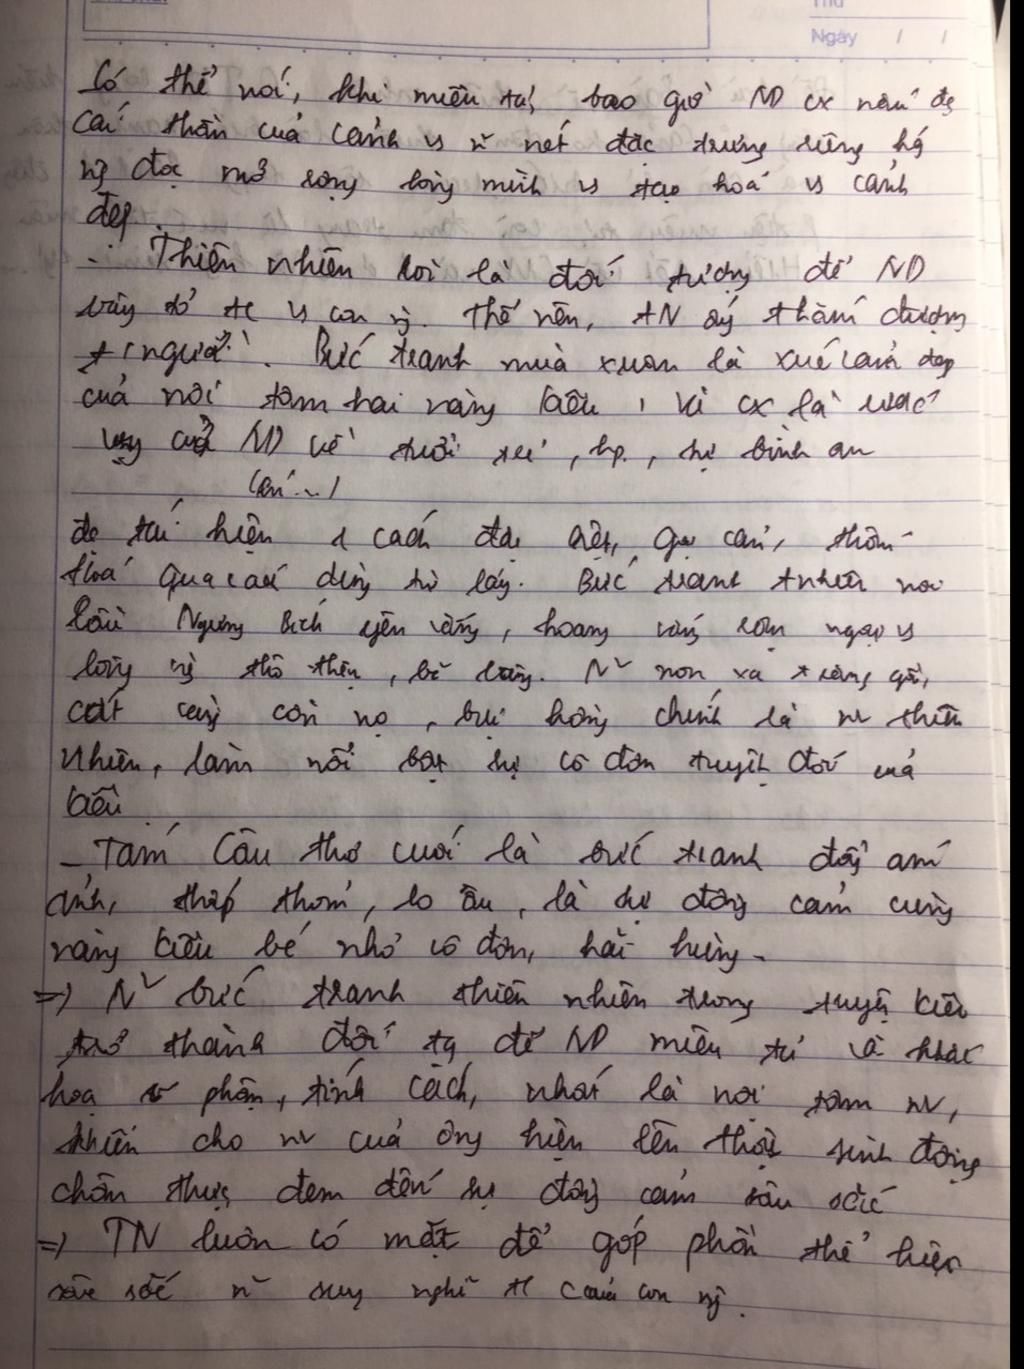 Thứ
Ngày / /
Có thể nói, khi miêu tả, bao giờ ND cx nắm đc
cái thần của cảnh vs n~ nét đặc trưng riêng
ng đọc mở rộng lòng mình vs tạo hoá vs cảnh
đẹp.
- Thiên nhiên còn là đối tượng để ND
bày tỏ tc vs con ng. Thế nên, TN ấy thấm đượm
t/c người. Bức tranh mùa xuân là xuất cảnh đẹp
của nội tâm hai nàng Kiều, và cx là ước
vọng của ND về tuổi trẻ, hp, sự bình an
đc tái hiện 1 cách đặc biệt, gợi cảm, thấm
thía qua cách dùng từ láy. Bức tranh tnhiên nơi
lầu Ngưng Bích yên vắng, hoang vắng rợn ngợp vs
lòng ng thổn thức, bẽ bàng. N~ non xa trăng gần,
cát vàng cồn nọ, bụi hồng chính là nv thiên
nhiên, làm nổi bật sự cô đơn tuyệt đối của
Kiều
- Tám câu thơ cuối là bức tranh đầy ám
ảnh, thấp thỏm, lo âu, là sự đồng cảm cùng
nàng Kiều bé nhỏ cô đơn, hãi hùng.
=) N~ bức tranh thiên nhiên trong truyện Kiều
trở thành đối tg để ND miêu tả và khắc
hoạ số phận, tính cách, nhất là nội tâm nv,
khiến cho nv của ông hiện lên thật sinh động
chân thực, đem đến sự đồng cảm sâu sắc
=) TN luôn có mặt để góp phần thể hiện
sâu sắc n~ suy nghĩ tc của con ng.